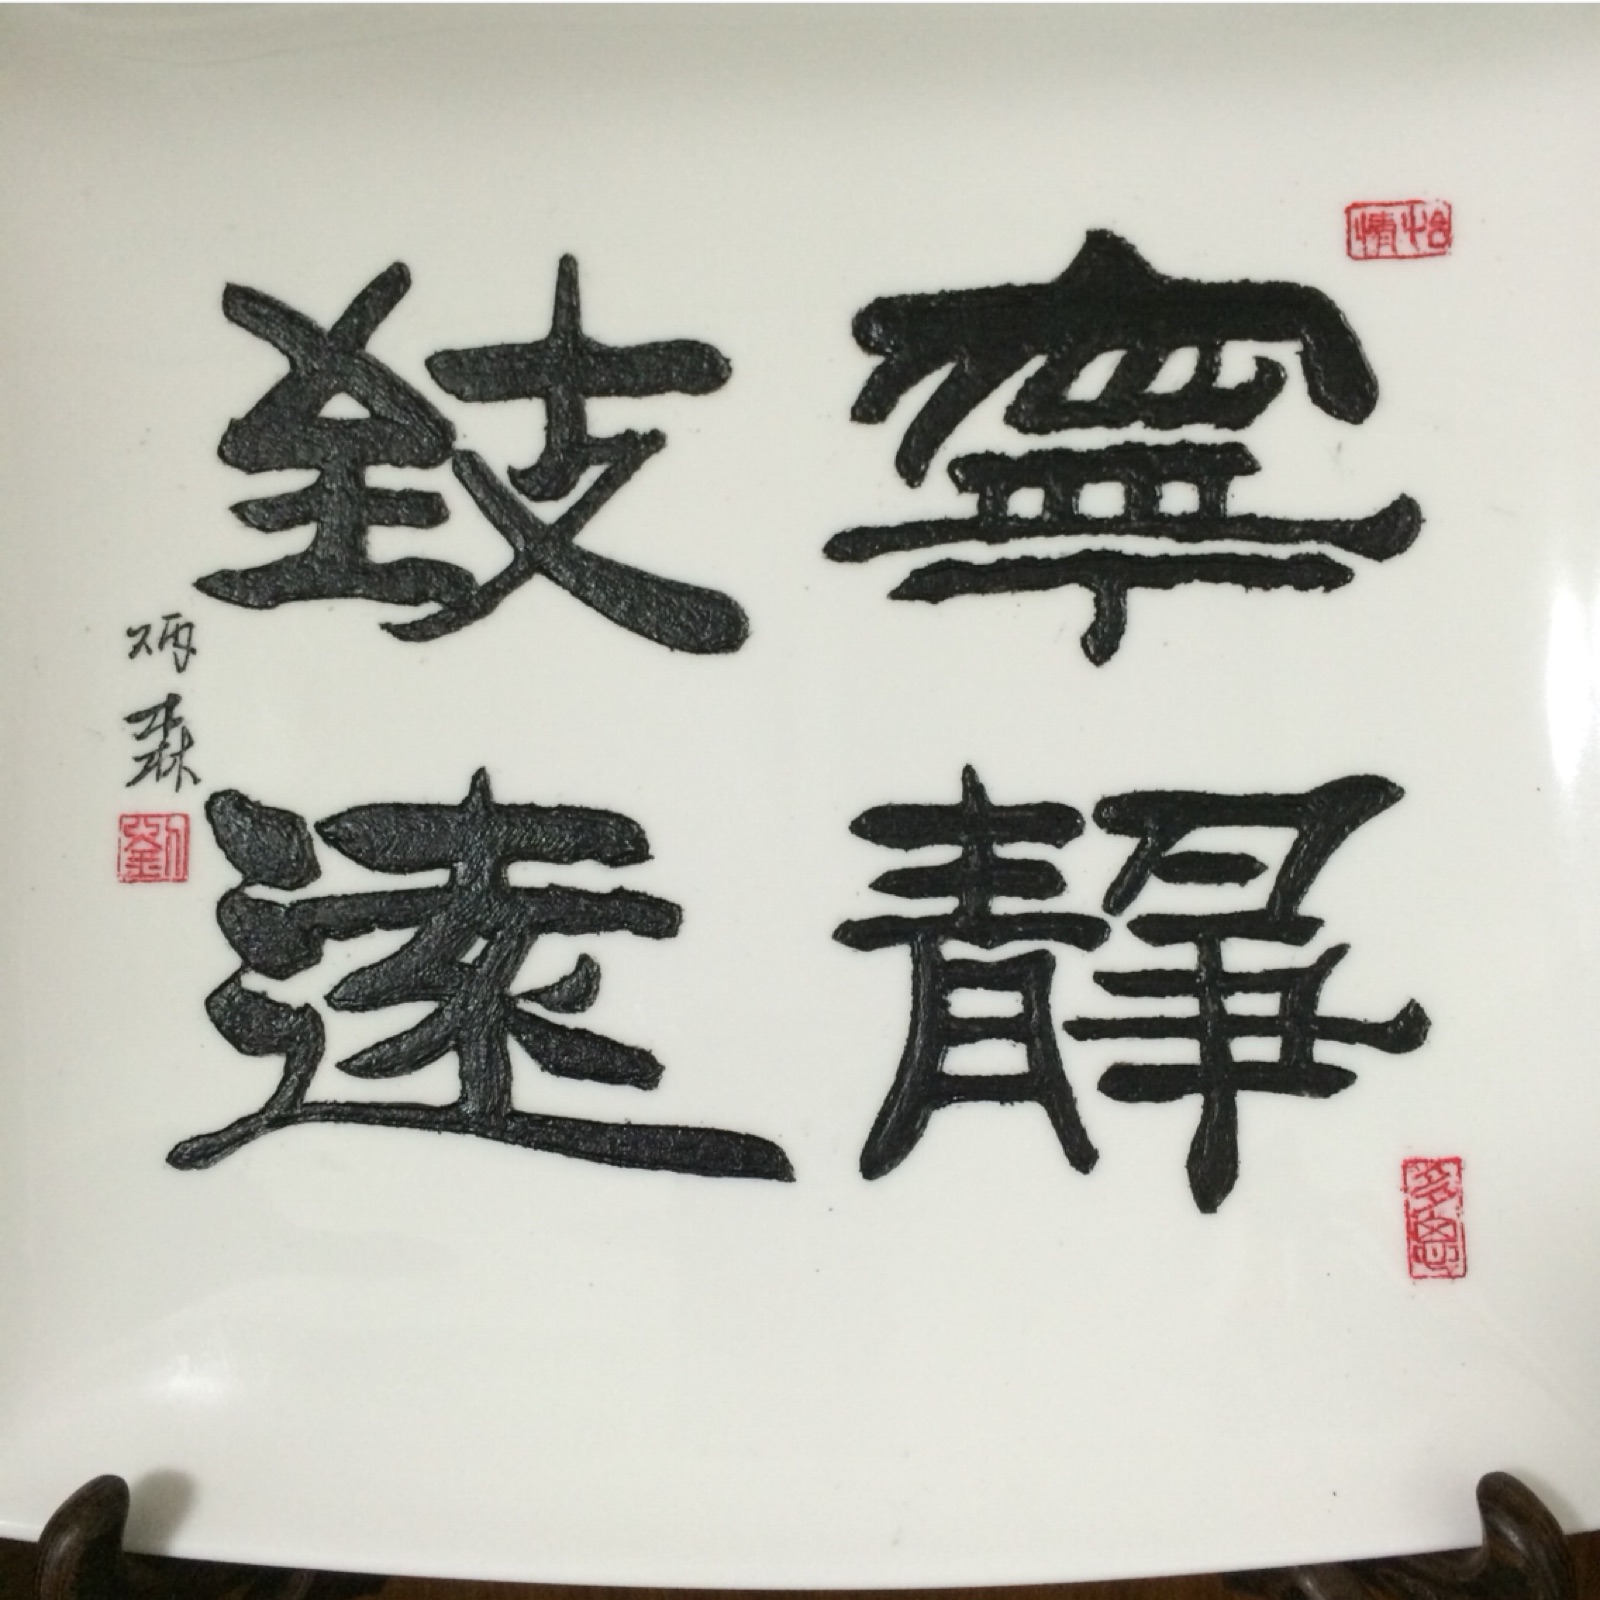 寧靜
致遠
炳森
怡情
劉